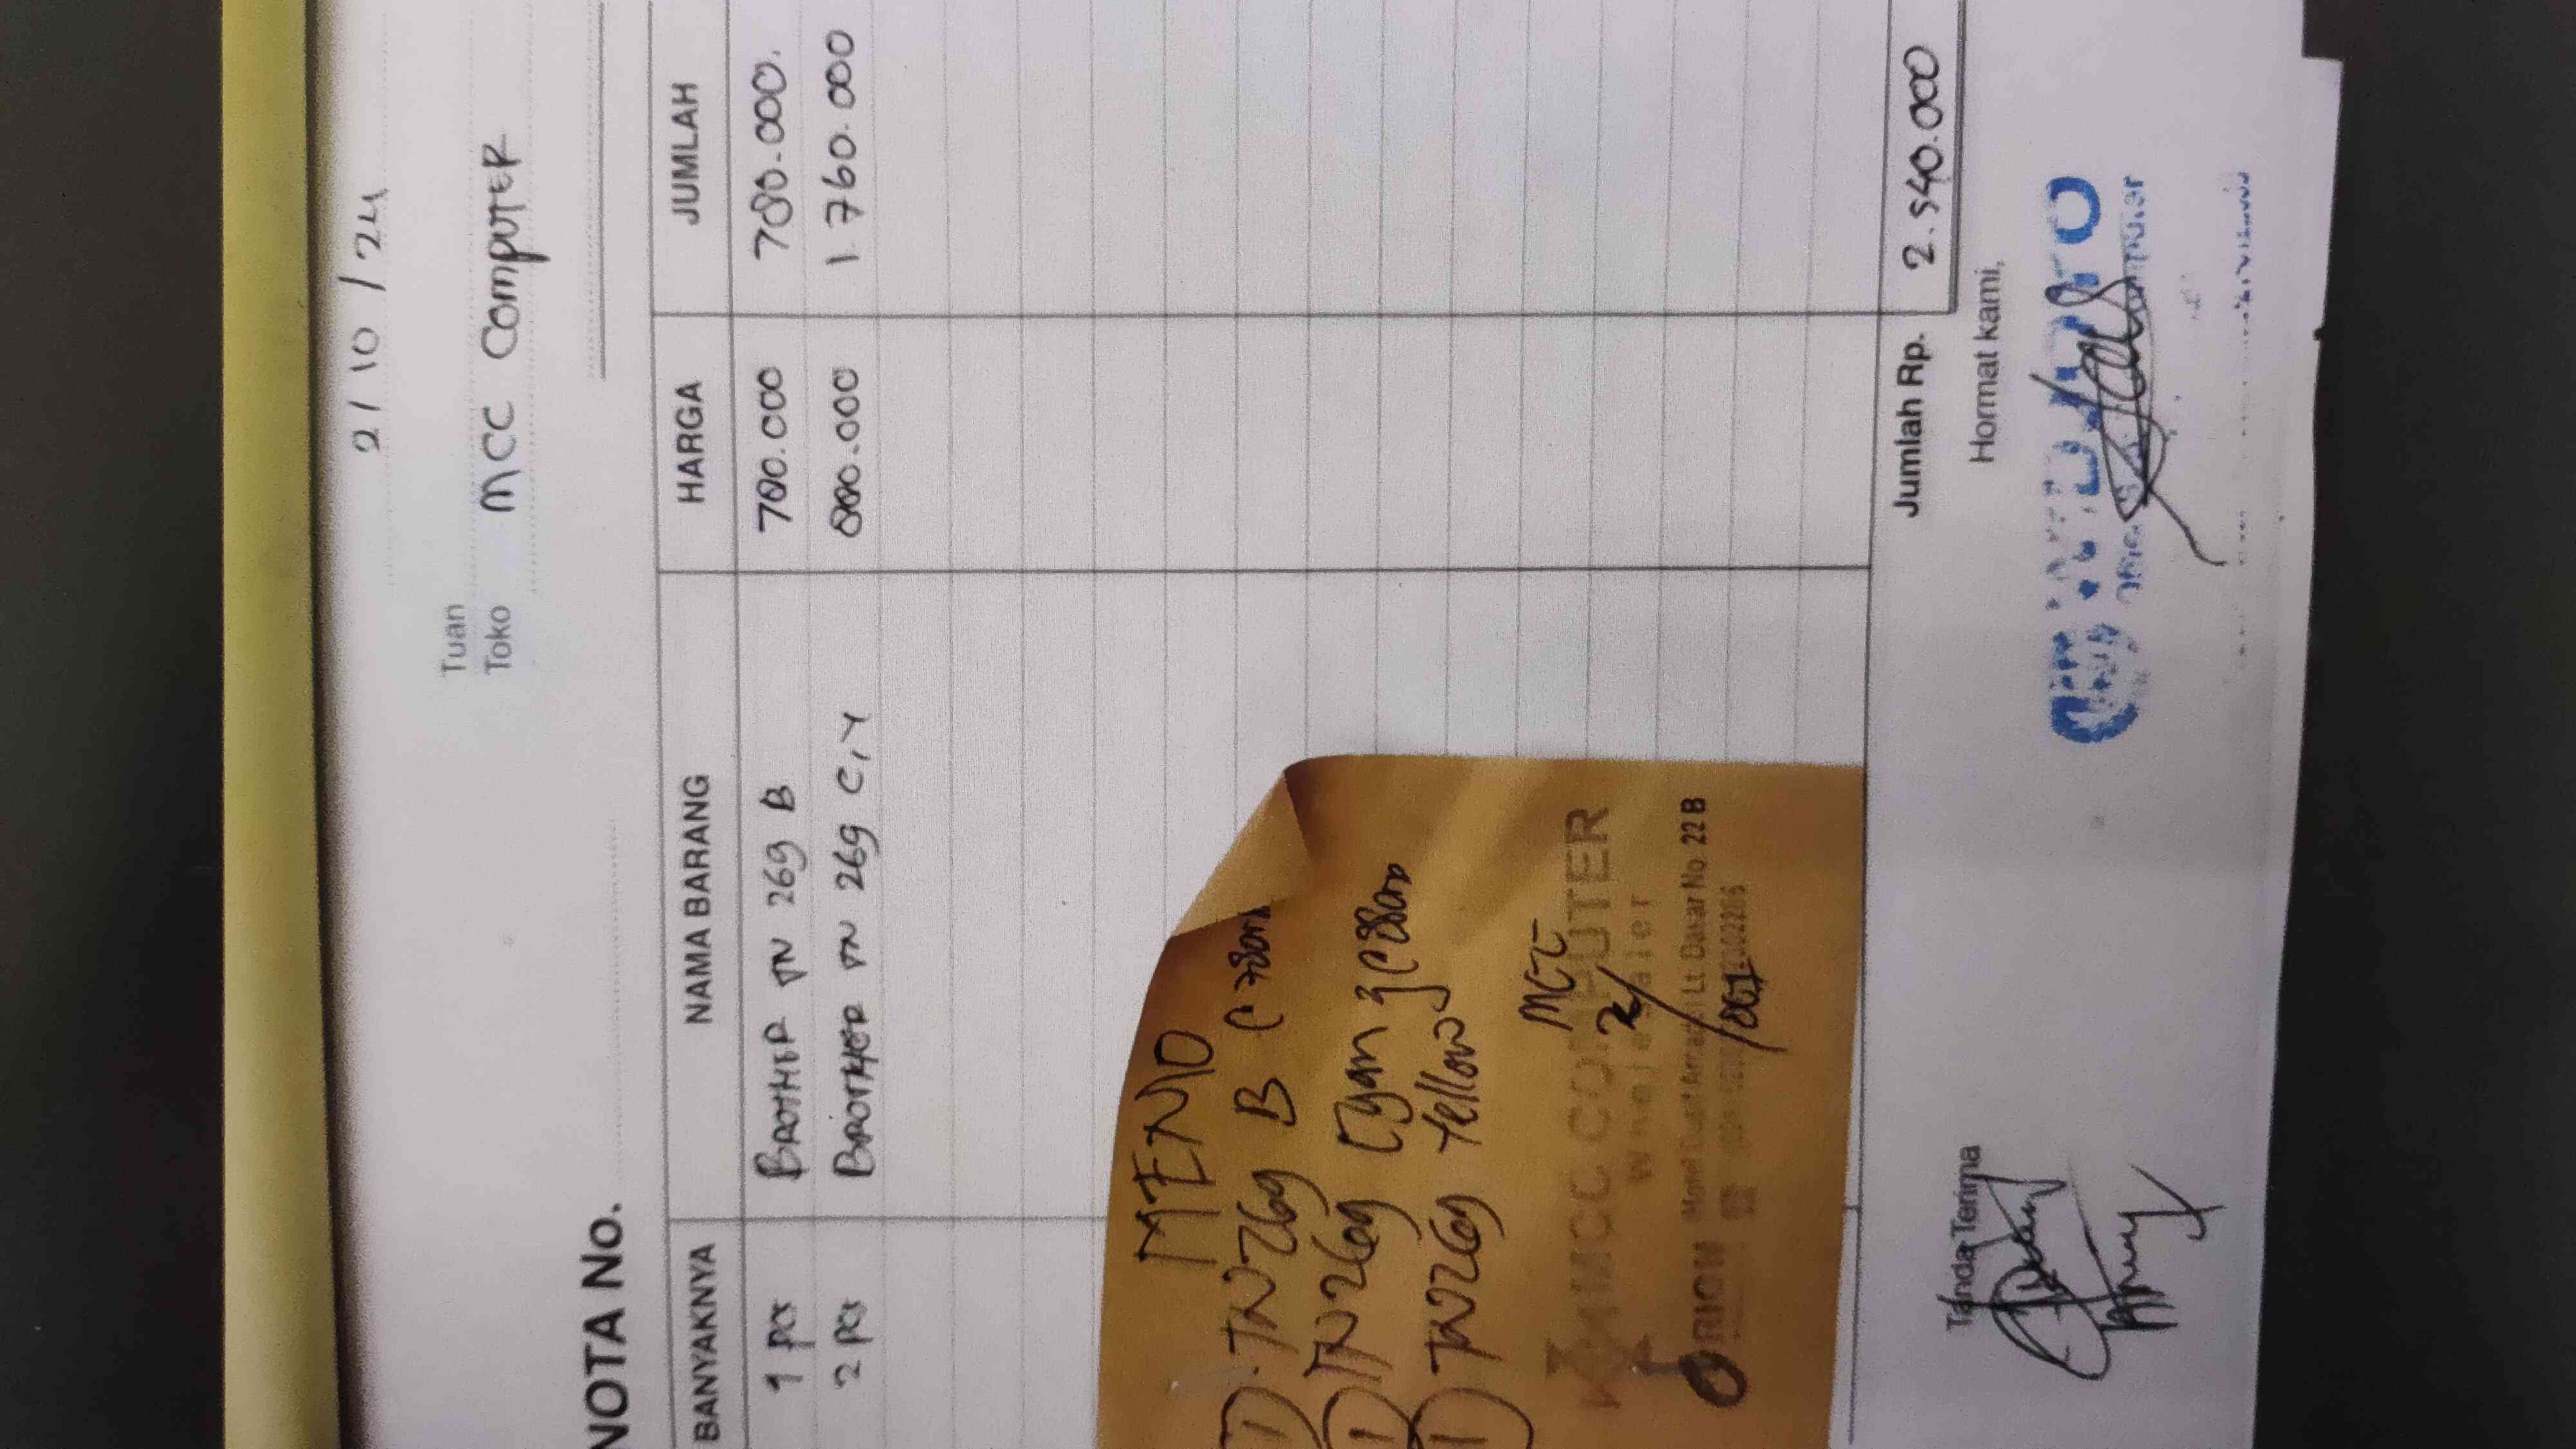 2/10/24
Tuan
Toko MCC Computer
NOTA No.
BANYAKNYA NAMA BARANG HARGA JUMLAH
1 pcs BROTHER TN 269 B 780.000 780.000.
2 pcs BROTHER TN 269 C, Y 880.000 1.760.000
MEMO
1 TN269 B
1 TN269 Cyan
1 TN269 Yellow
MCC
MCC COMPUTER
Wholesaler
ORION Lt Dasar No 22 B
Jumlah Rp. 2.540.000
Tanda Terima
Hormat kami,